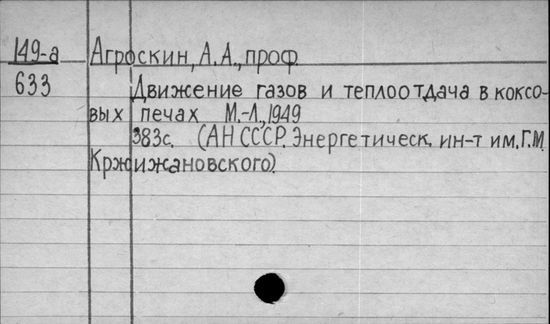 149-а Агроскин, А.А., проф.
633 Движение газов и теплоотдача в коксо-
вых печах М.-Л., 1949
383с. (АН СССР. Энергетическ. ин-т им. Г.М.
Кржижановского).